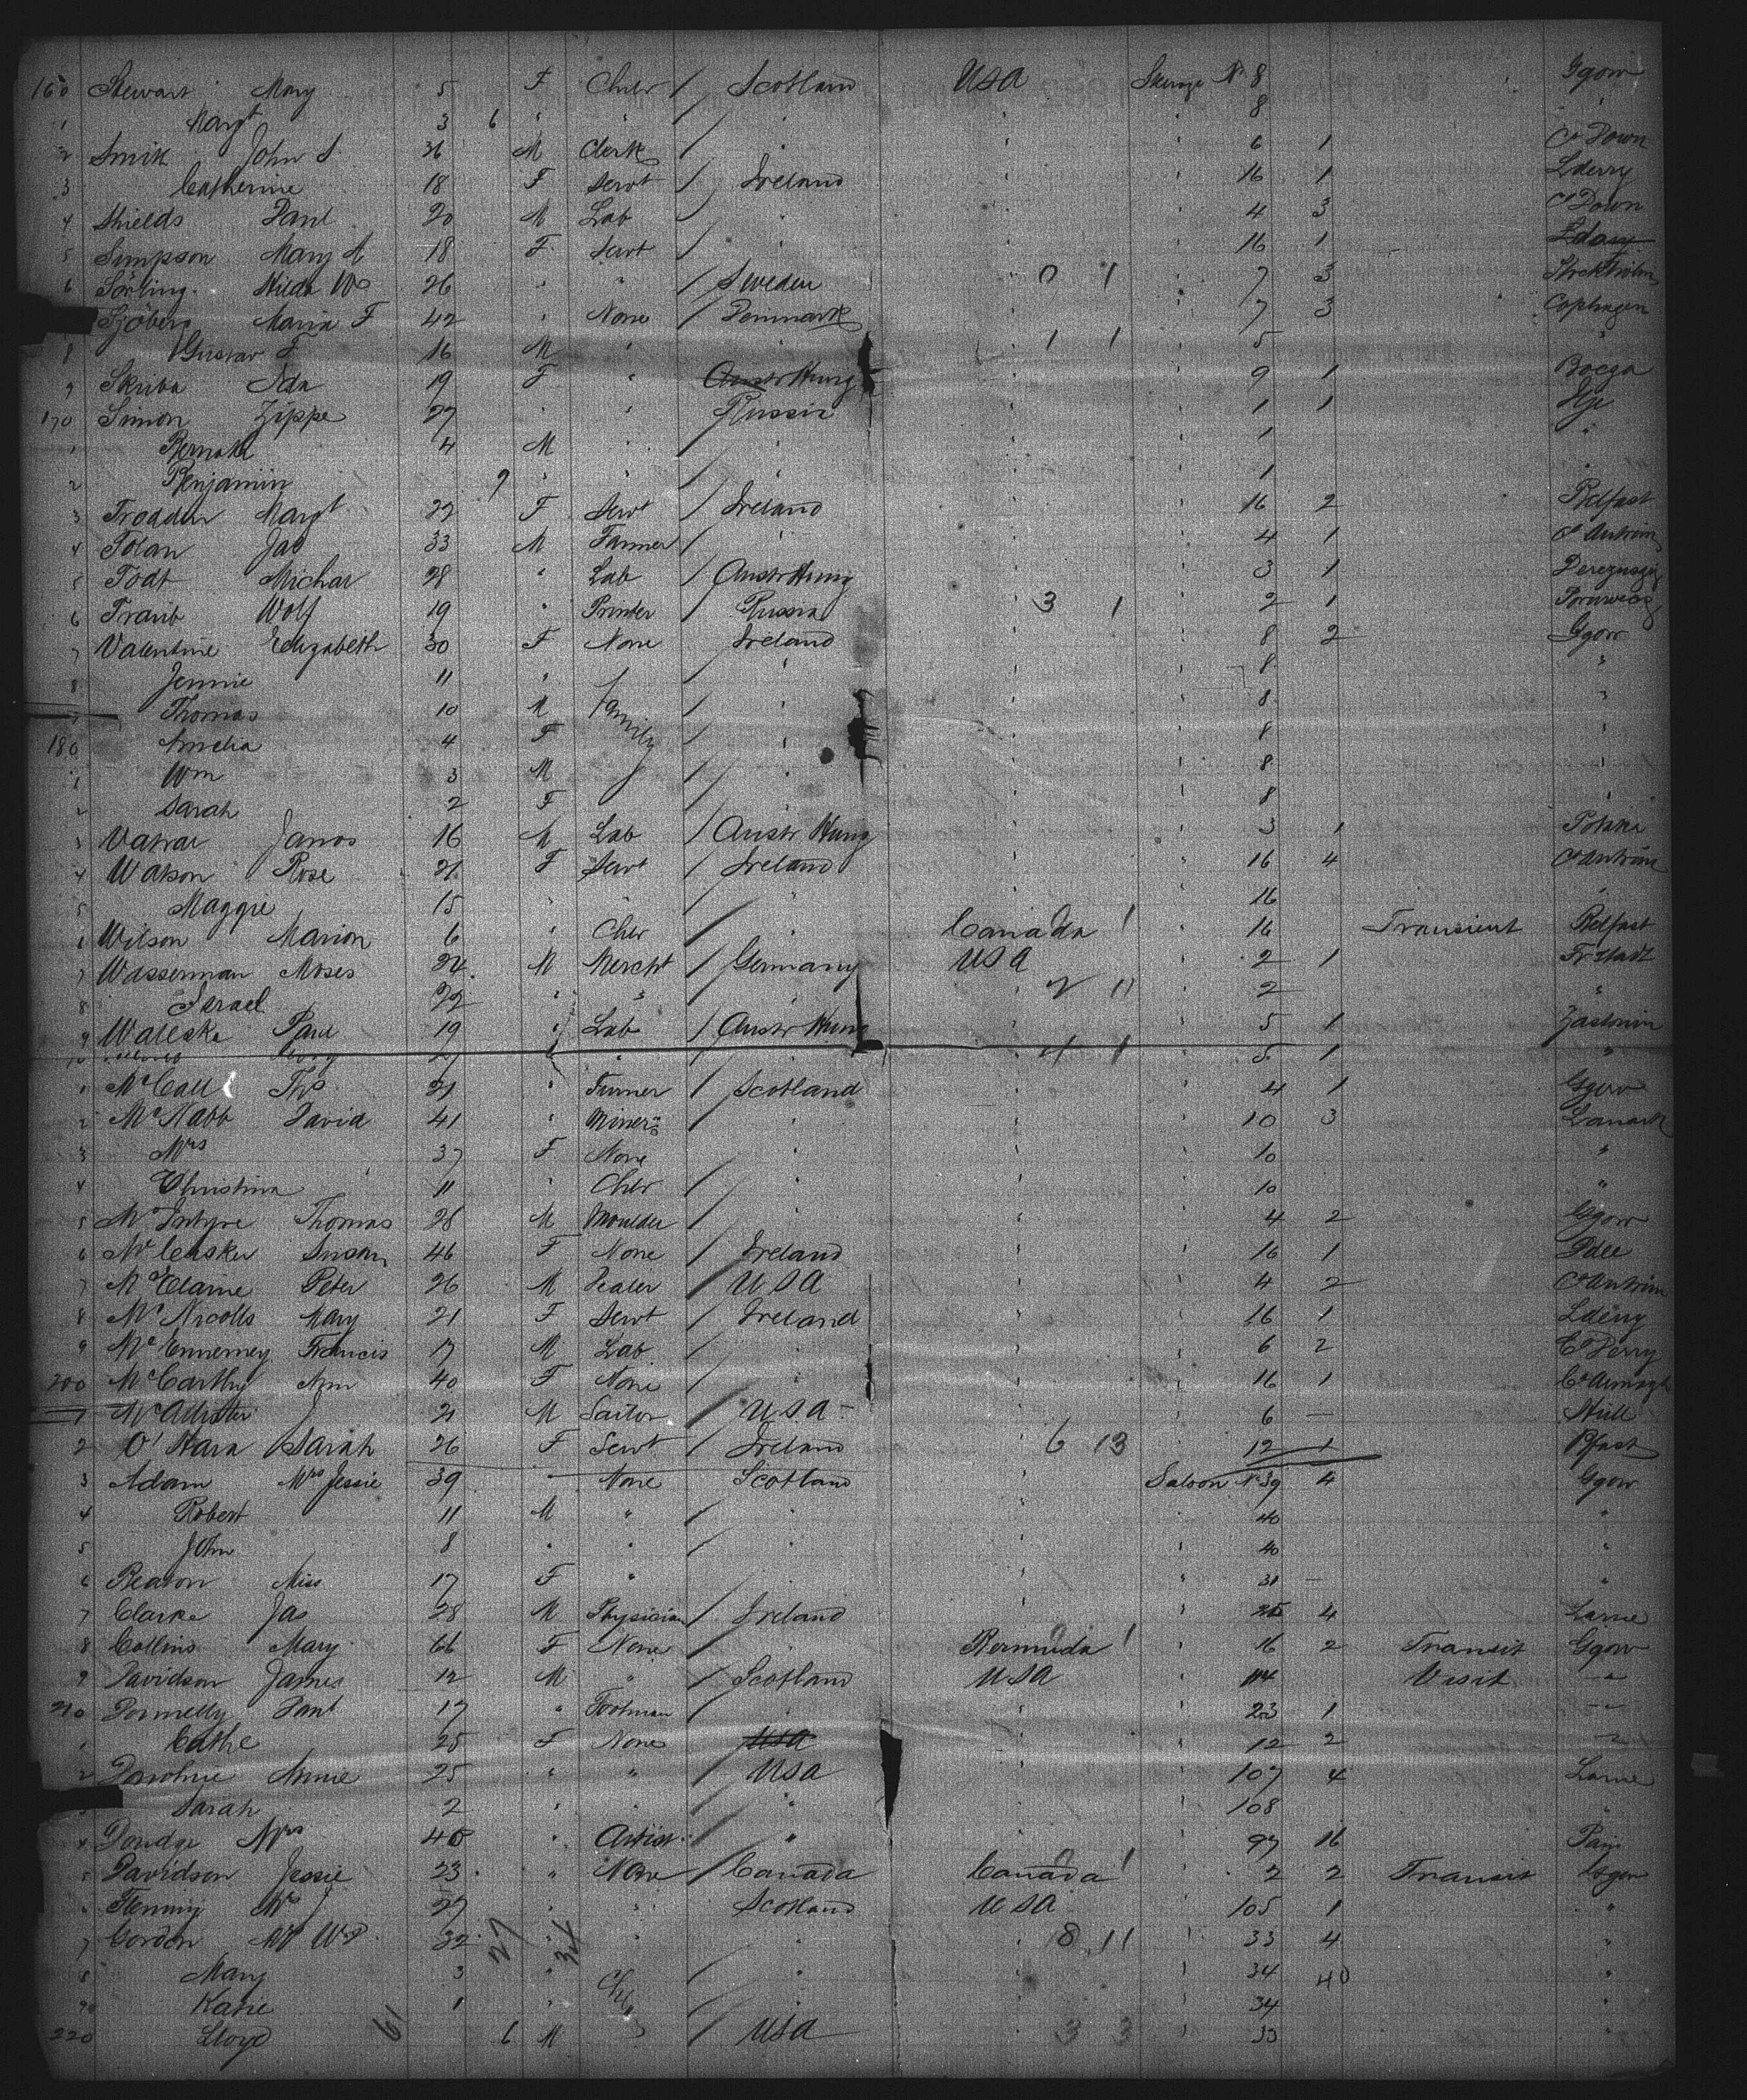 160 Stewart Mary 5 F Chldr / Scotland USA Steerage No 8 Ggow
1 Margt 3 6 " " / " " " 8 "
2 Smith John S 36 M Clerk / " " " 6 1 Co Down
3 Catherine 18 F Servt / Ireland " " 16 1 Lderry
4 Shields Danl 20 M Lab / " " " 4 3 Co Down
5 Simpson Mary A 18 F Servt / " " " 16 1
6 Sörling Hilda 26 " " / Sweden 0 1 " 7 3 Stockholm
Sjöberg Maria F 42 " None / Denmark " " 7 3 Cophagen
8 Gustav F 16 M " " 1 1 " 5 "
9 Skriba Ida 19 F " Austr Hung " " 9 1
170 Simon Zippe 27 " " Russia " " 1 1
1 4 M " / " " " 1 "
2 Benjamin 9 " " / " " " 1 "
3 Trodden Margt 22 F Servt / Ireland " " 16 2 Belfast
4 Tolan Jas 33 M Farmer / " " " 4 1 Co Antrim
5 Todt 28 " Lab / Austr Hung " " 3 1
6 Traub Wolf 19 " Printer / Russia 3 1 " 2 1
7 Valentine Elizabeth 30 F None Ireland " " 8 2 Ggow
8 Jennie 11 " " " " 8 "
Thomas 10 M family / " " " 8 "
180 Amelia 4 F / " " " 8 "
1 Wm 3 M / " " " 8 "
2 Sarah 2 F / " " " 8 "
3 Janos 16 M Lab / Austr Hung " " 3 1
4 Watson Rose 21 F Servt / Ireland " " 16 4 Co Antrim
5 Maggie 15 " " / " " " 16 "
6 Wilson Marion 6 " Chldr / " Canada 1 " 16 Transient Belfast
7 Wasserman Moses 24 M Mercht / Germany USA " 2 1
8 Israel 22 " " / " 2 11 " 2 "
9 Waleska Paul 19 " Lab / Austr Hung " " 5 1
27 " " / " 4 1 " 5 1 "
1 McCall Ths 21 " Turner / Scotland " " 4 1 Ggow
2 McNabb David 41 " Miner / " " " 10 3 Lanark
3 Mrs 37 F None " " " 10 "
4 Christina 11 " Chldr / " " " 10 "
5 McIntyre Thomas 28 M Moulder / " " " 4 2 Ggow
6 McCusker Susan 46 F None / Ireland " " 16 1 Ddee
7 McElaine Peter 26 M Dealer / USA " " 4 2 Co Antrim
8 McNicolls Mary 21 F Servt / Ireland " " 16 1 Lderry
9 McEnnerney Francis 17 M Lab / " " " 6 2 Co Derry
200 McCarthy Ann 40 F None / " " " 16 1 Co Armagh
1 McAllister J 21 M Sailor / USA " " 6 — Hull
2 O'Hara Sarah 26 F Servt / Ireland 6 13 12 1 Bfast
3 Adam Mrs Jessie 39 " None Scotland " Saloon No 39 4 Ggow
4 Robert 11 M " / " " " 40 "
5 John 8 " " / " " " 40 "
6 Beaton Miss 17 F " " " " 31 — "
7 Clarke Jas 28 M Physician / Ireland " " 4 Larne
8 Collins Mary 66 F None " Bermuda 1 " 16 2 Transit Ggow
9 Davidson James 12 M " / Scotland USA " 114 Visit "
210 Donnelly Danl 17 " Footman / " " " 23 1 "
1 Cathe 25 F None USA " " 12 2 "
2 Annie 25 " " / USA " " 107 4 Larne
3 Sarah 2 " " / " " " 108 "
4 Mrs 40 " Artist " " " 97 16
5 Davidson Jessie 23 " None / Canada Canada 1 " 2 2 Transit Ggow
" Fleming Mrs J 27 " " Scotland USA " 105 1 "
7 Gordon 32 " " " 8 11 " 33 4 "
8 Mary 3 " Chl / " " " 34 40 "
9 Katie 1 " " / " " " 34 "
220 Lloyd 61 6 M " / USA 3 3 " 33 "
27 34